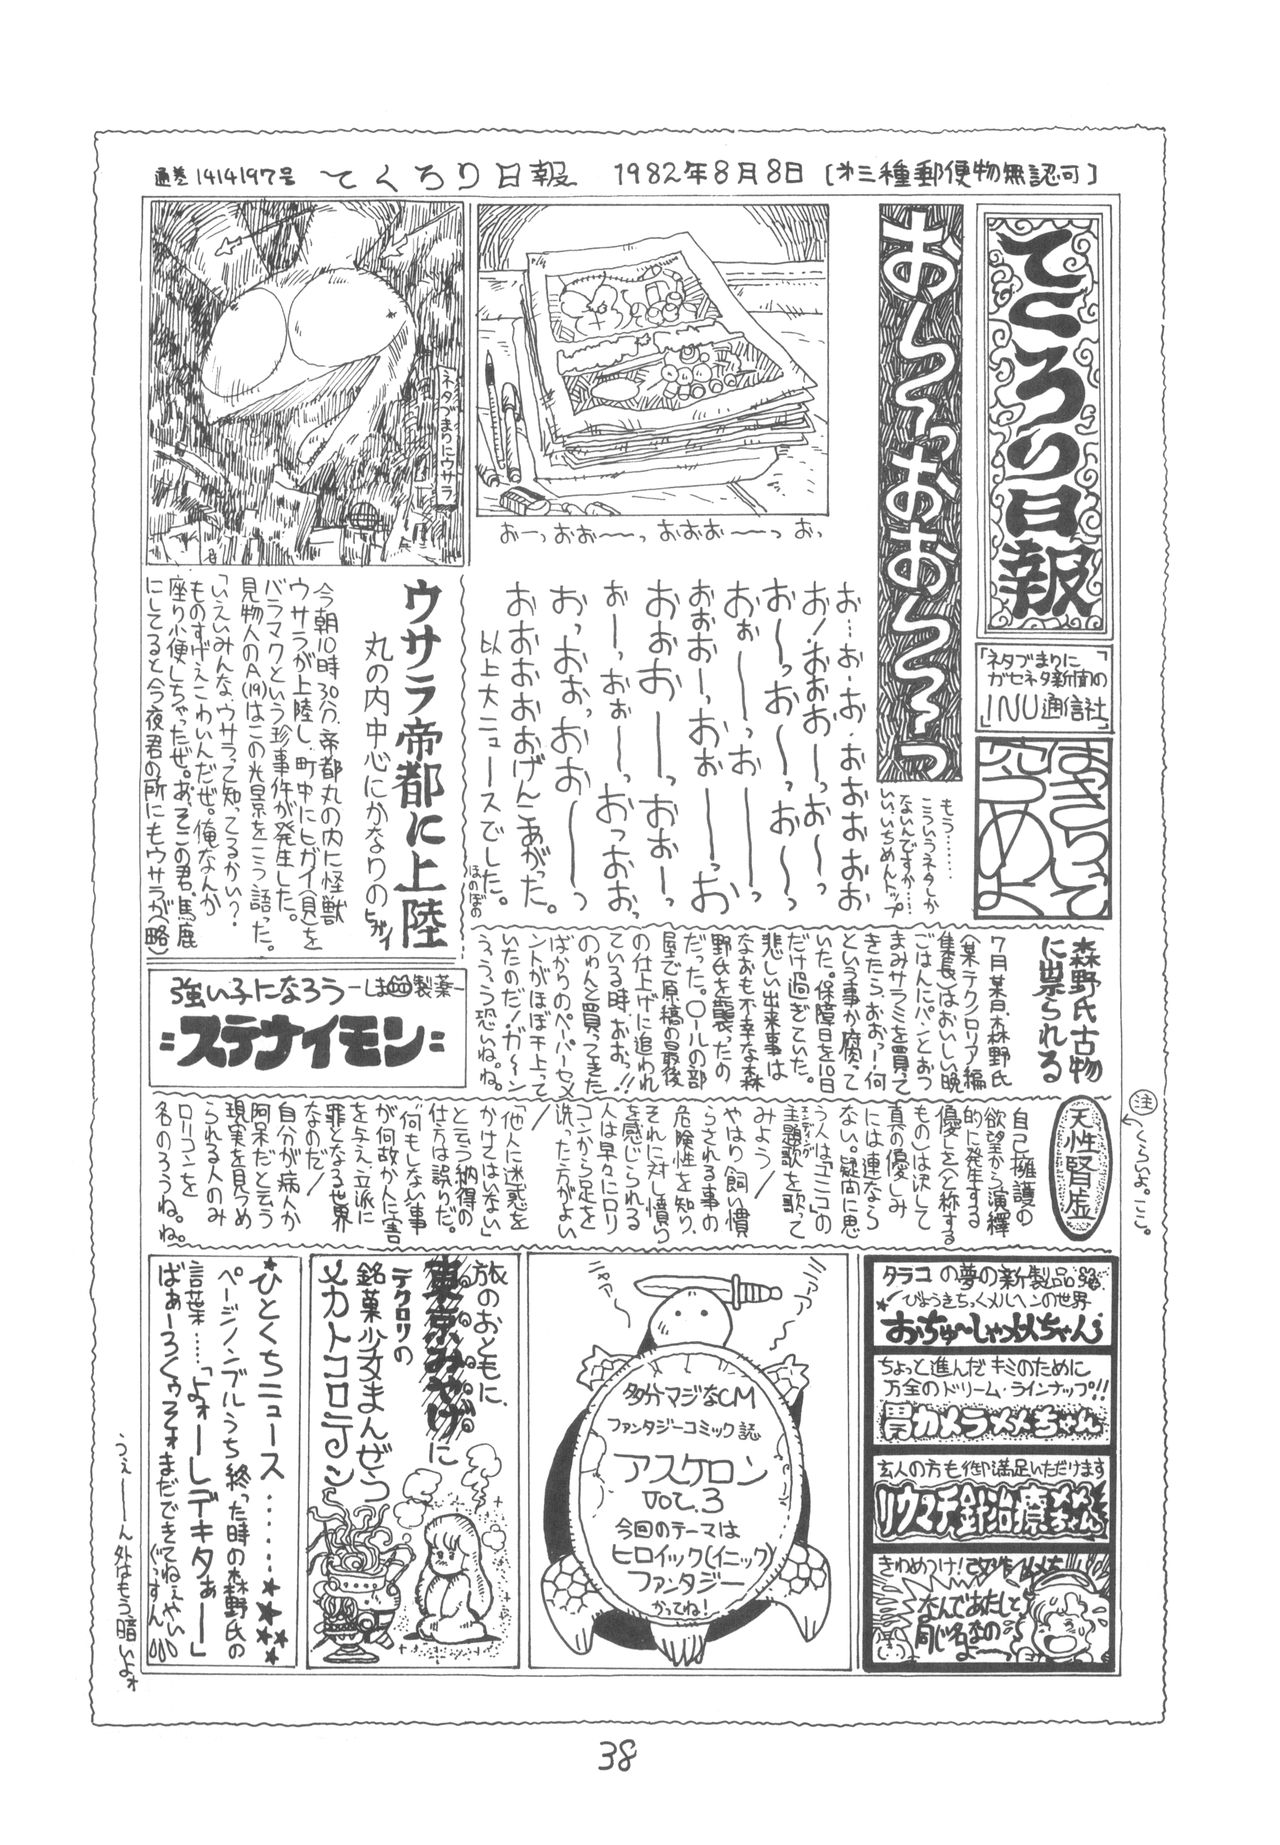 通巻1414197号 てくろり日報 1982年8月8日 [オ三種郵便物無認可]
てくろり日報
「ネタづまりに
ガセネタ新聞の
INU通信社」
おーっおおーっ
もう………
こういうネタしか
ないんですか……
いい、いちめんトップ
おーっおおーっ おおおーっ おっ
お…お・お・おおおお
おおおおおげんこあがった。
以上大ニュースでした。
ほのぼの
ネタづまりにウサラ
ウサラ帝都に上陸
丸の内中心にかなりのヒガイ
今朝10時30分、帝都丸の内に怪獣
ウサラが上陸し、町中にヒガイ(貝)を
バラマクという珍事件が発生した。
見物人のA(19)はこの光景をこう語った。
「いえいみんな、ウサラって知ってるかい?
ものすげえこわいんだぜ。俺なんか
座り小便しちゃったぜ。あ、そこの君、馬鹿
にしてると今夜君の所にもウサラが(略)
森野氏古物
に祟られる
7月某日、森野氏
(某テクノロリア編
集長)はおいしい晩
ごはんにパンとおつ
まみサラミを買って
きたら、おおー!何
という事か腐って
いた。保障日を10日
だけ過ぎていた。
悲しい出来事は
なおも不幸な森
野氏を襲ったの
だった。ロールの部
屋で原稿の最後
の仕上げに追われ
ている時、おおっ!!
のゅんと買ってきた
ばかりのペーパーセメ
ントがほぼ干上って
いたのだ!ガ〜ン
ううう、う恐いね。ね。
強い子になろう -しま製薬-
=ステナイモン=
注 くらいよ。ここ。
天性腎虚
自己擁護の
欲望から演繹
的に発生する
優しさ(と称する
もの)は決して
真の優しみ
には連なら
ない。疑問に思
う人は「ミミコ」の
エンディング
主題歌を歌って
みよう/
やはり飼い慣
らされる事の
危険性を知り、
それに対し憤り
を感じられる
人は早々にロリ
コンから足を
洗った方がよい
/
「他人に迷惑を
かけてはいない」
と云う納得の
仕方は誤りだ。
何もしない事
が何故か人に害
を与え、立派に
罪となる世界
なのだ/
自分が病人か
阿呆だと云う
現実を見つめ
られる人のみ
ロリコンを
名のろうね。ね。
タラコの夢の新製品
びょうきちっくメルヘンの世界
おちゅ〜しゃメメちゃん
ちょっと進んだキミのために
万全のドリーム・ラインナップ!!
胃カメラメメちゃん
玄人の方も御満足いただけます
リウマチ針治療メメちゃん
きわめつけ!改作メメち
なんであたしと
同じ名なの
よーっ
ニャァー
ニャァー
多分マジなCM
ファンタジーコミック誌
アスケロン
VOL.3
今回のテーマは
ヒロイック(イニック)
ファンタジー
かってね!
旅のおともに、
東京みやげに
テクロリの
銘菓少女まんぜう
メカトコロテン
★ひとくちニュース………★★★★
ページノンブルうち終った時の森野氏の
言葉……「よォーしデキタぁー」
ばぁーろくゥそォまだできてねぇやい
ぐっすん
うぇーーん外はもう暗いよォ
38